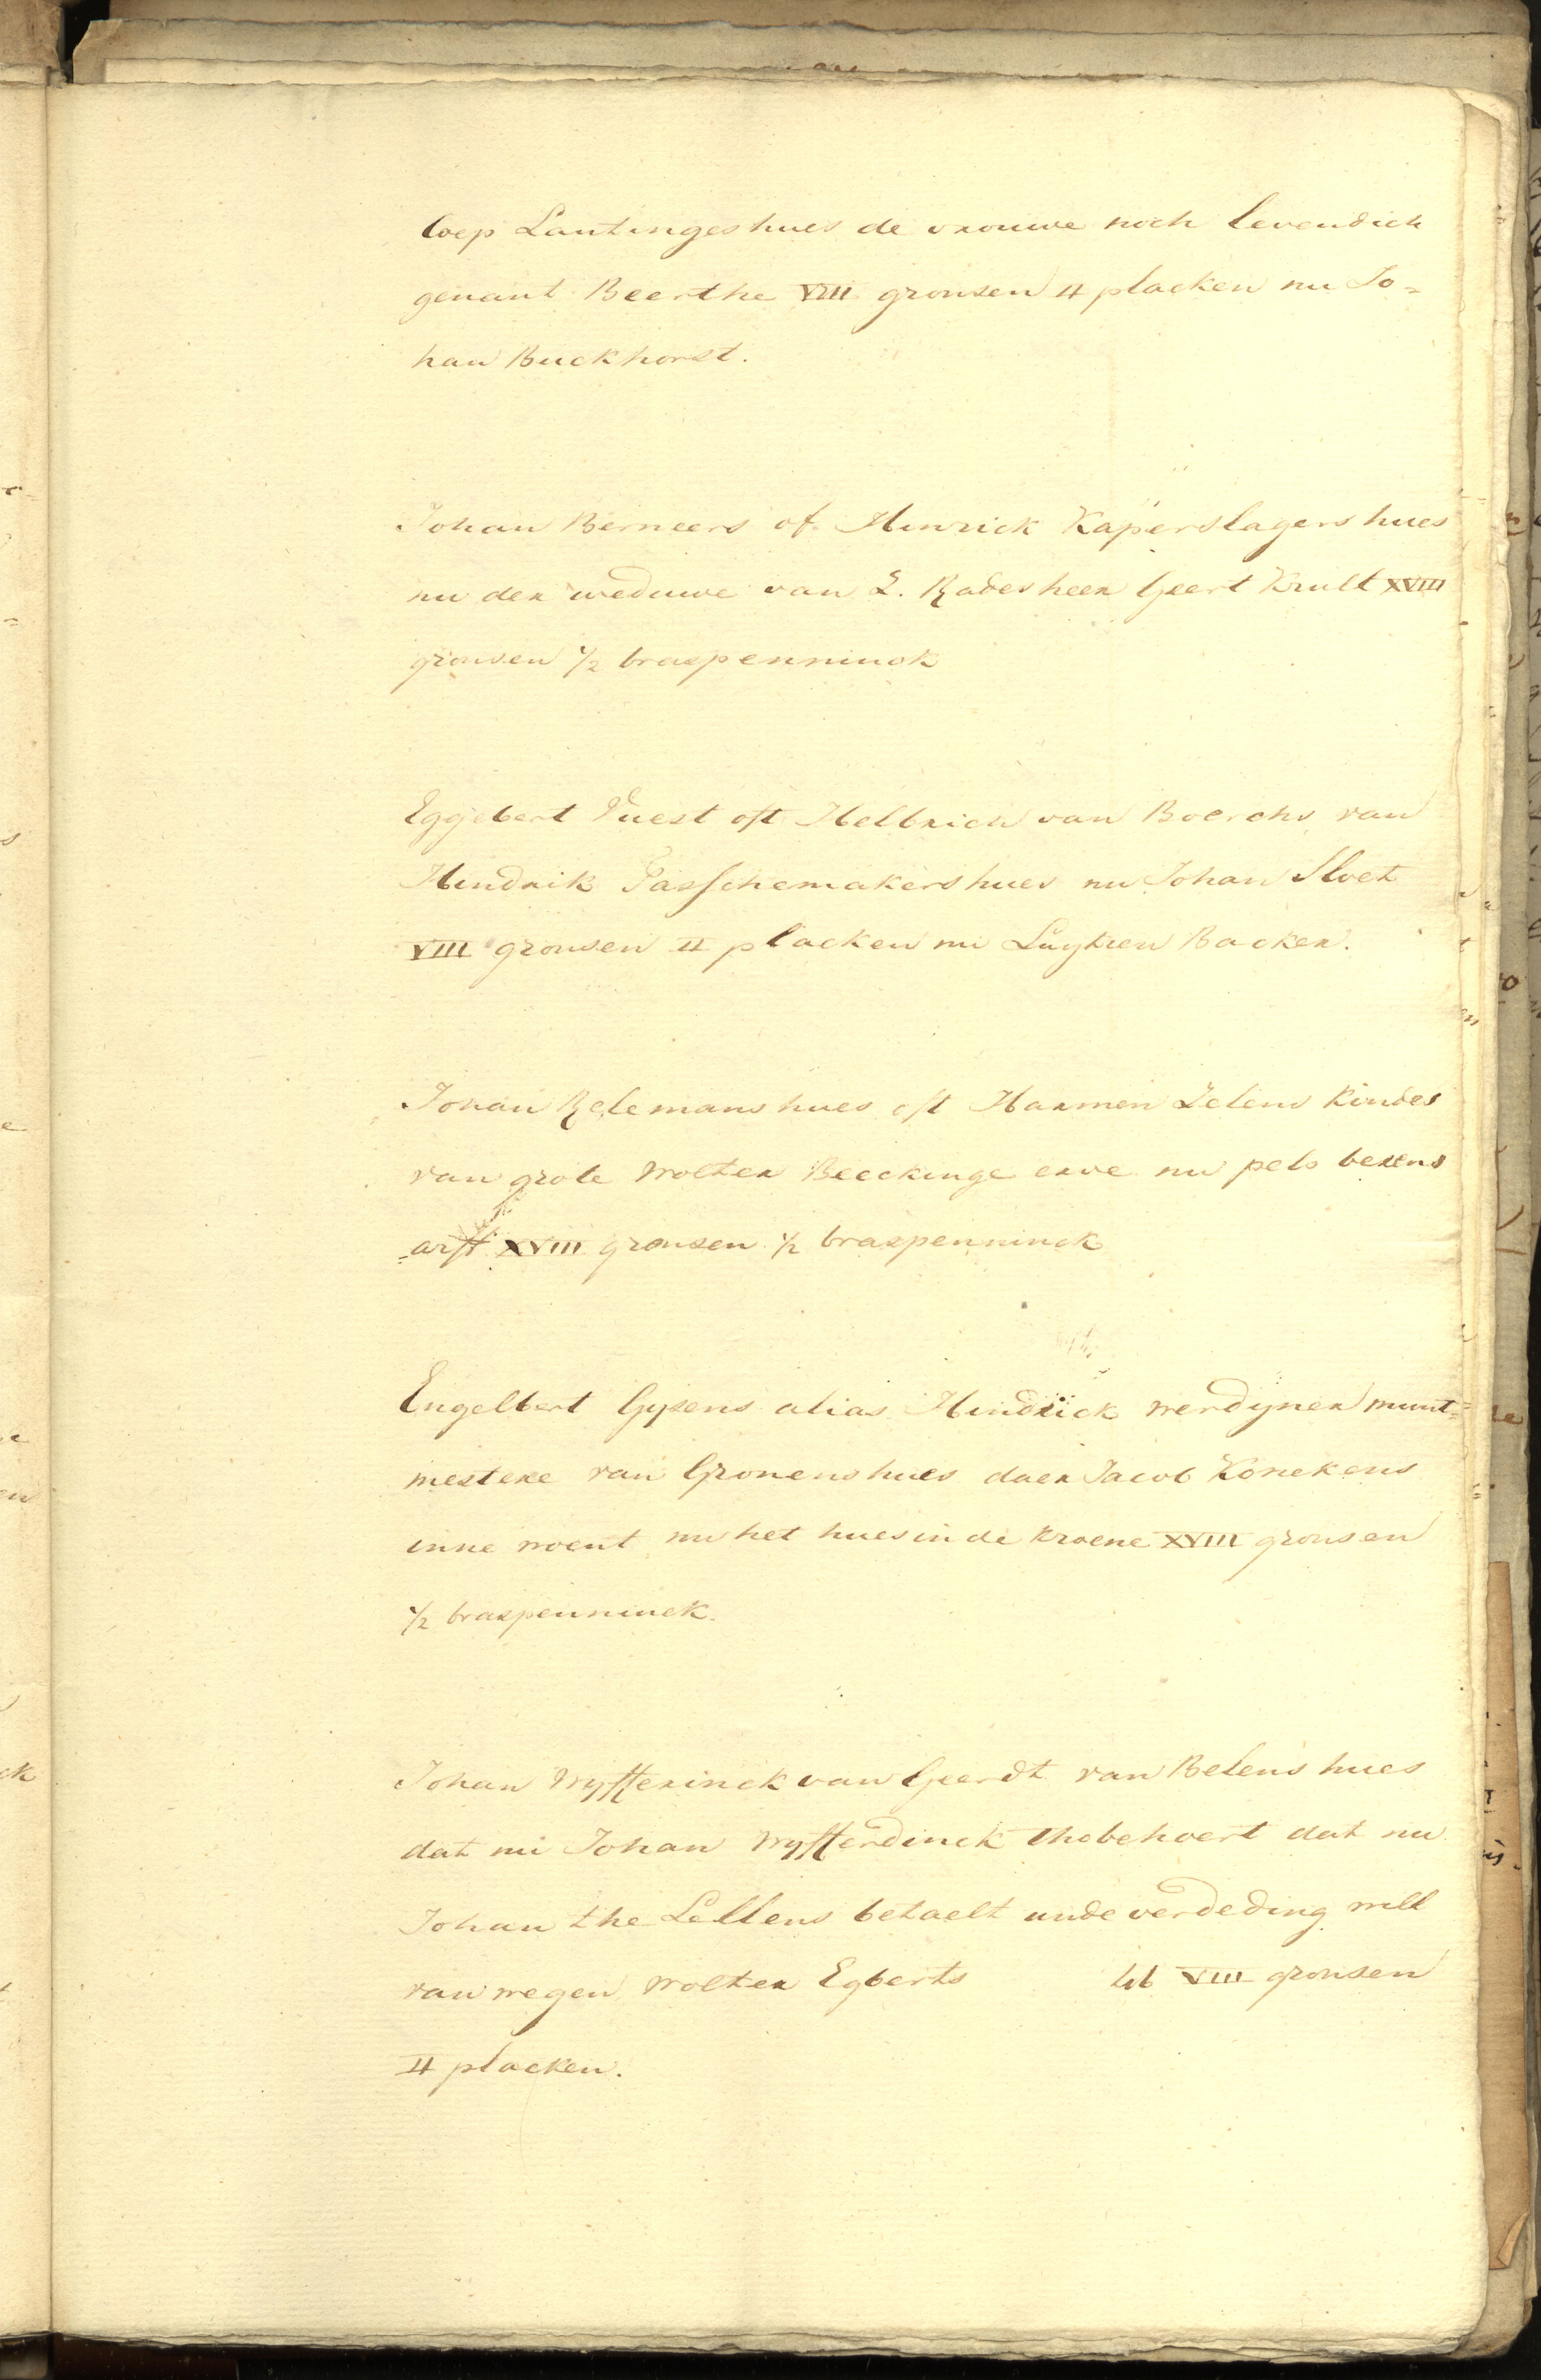 loep Lantinges hues de vrouwe noch levendich
genant Beerthe VIII gronsen II placken nu Jo=
han Buckhorst.
Johan Berneers of Hinrick Kaperslagers hues
nu der weduwe van L. Radesheer Geert Krult XVIII
gronsen 1/2 braspenninck
Eggebert Vuest oft Helbrich van Boerchs van
Hindrik Tasschemakers hues nu Johan Sloet
VIII gronsen II placken nu Luytien Backer.
Johan Relemans hues oft Harmen Zelens Kindes
van grote Wolter Beeckinge erve nu pels berens
arfft XVIII gronsen 1/2 braspenninck
Engelbert Gysens alias Hindrick werdyner munt=
mestere van Gronens hues daer Jacob Konekens
inne woent nu het hues in de Kroene XVIII gronsen
1/2 braspenninck.
Johan Wyfferinck van Geerdt van Belens hues
dat nu Johan Wyfferdinck thobehoert dat nu
Johan the Lellens betaelt unde verdeding will
van wegen Wolter Egberts VIII gronsen
II placken.